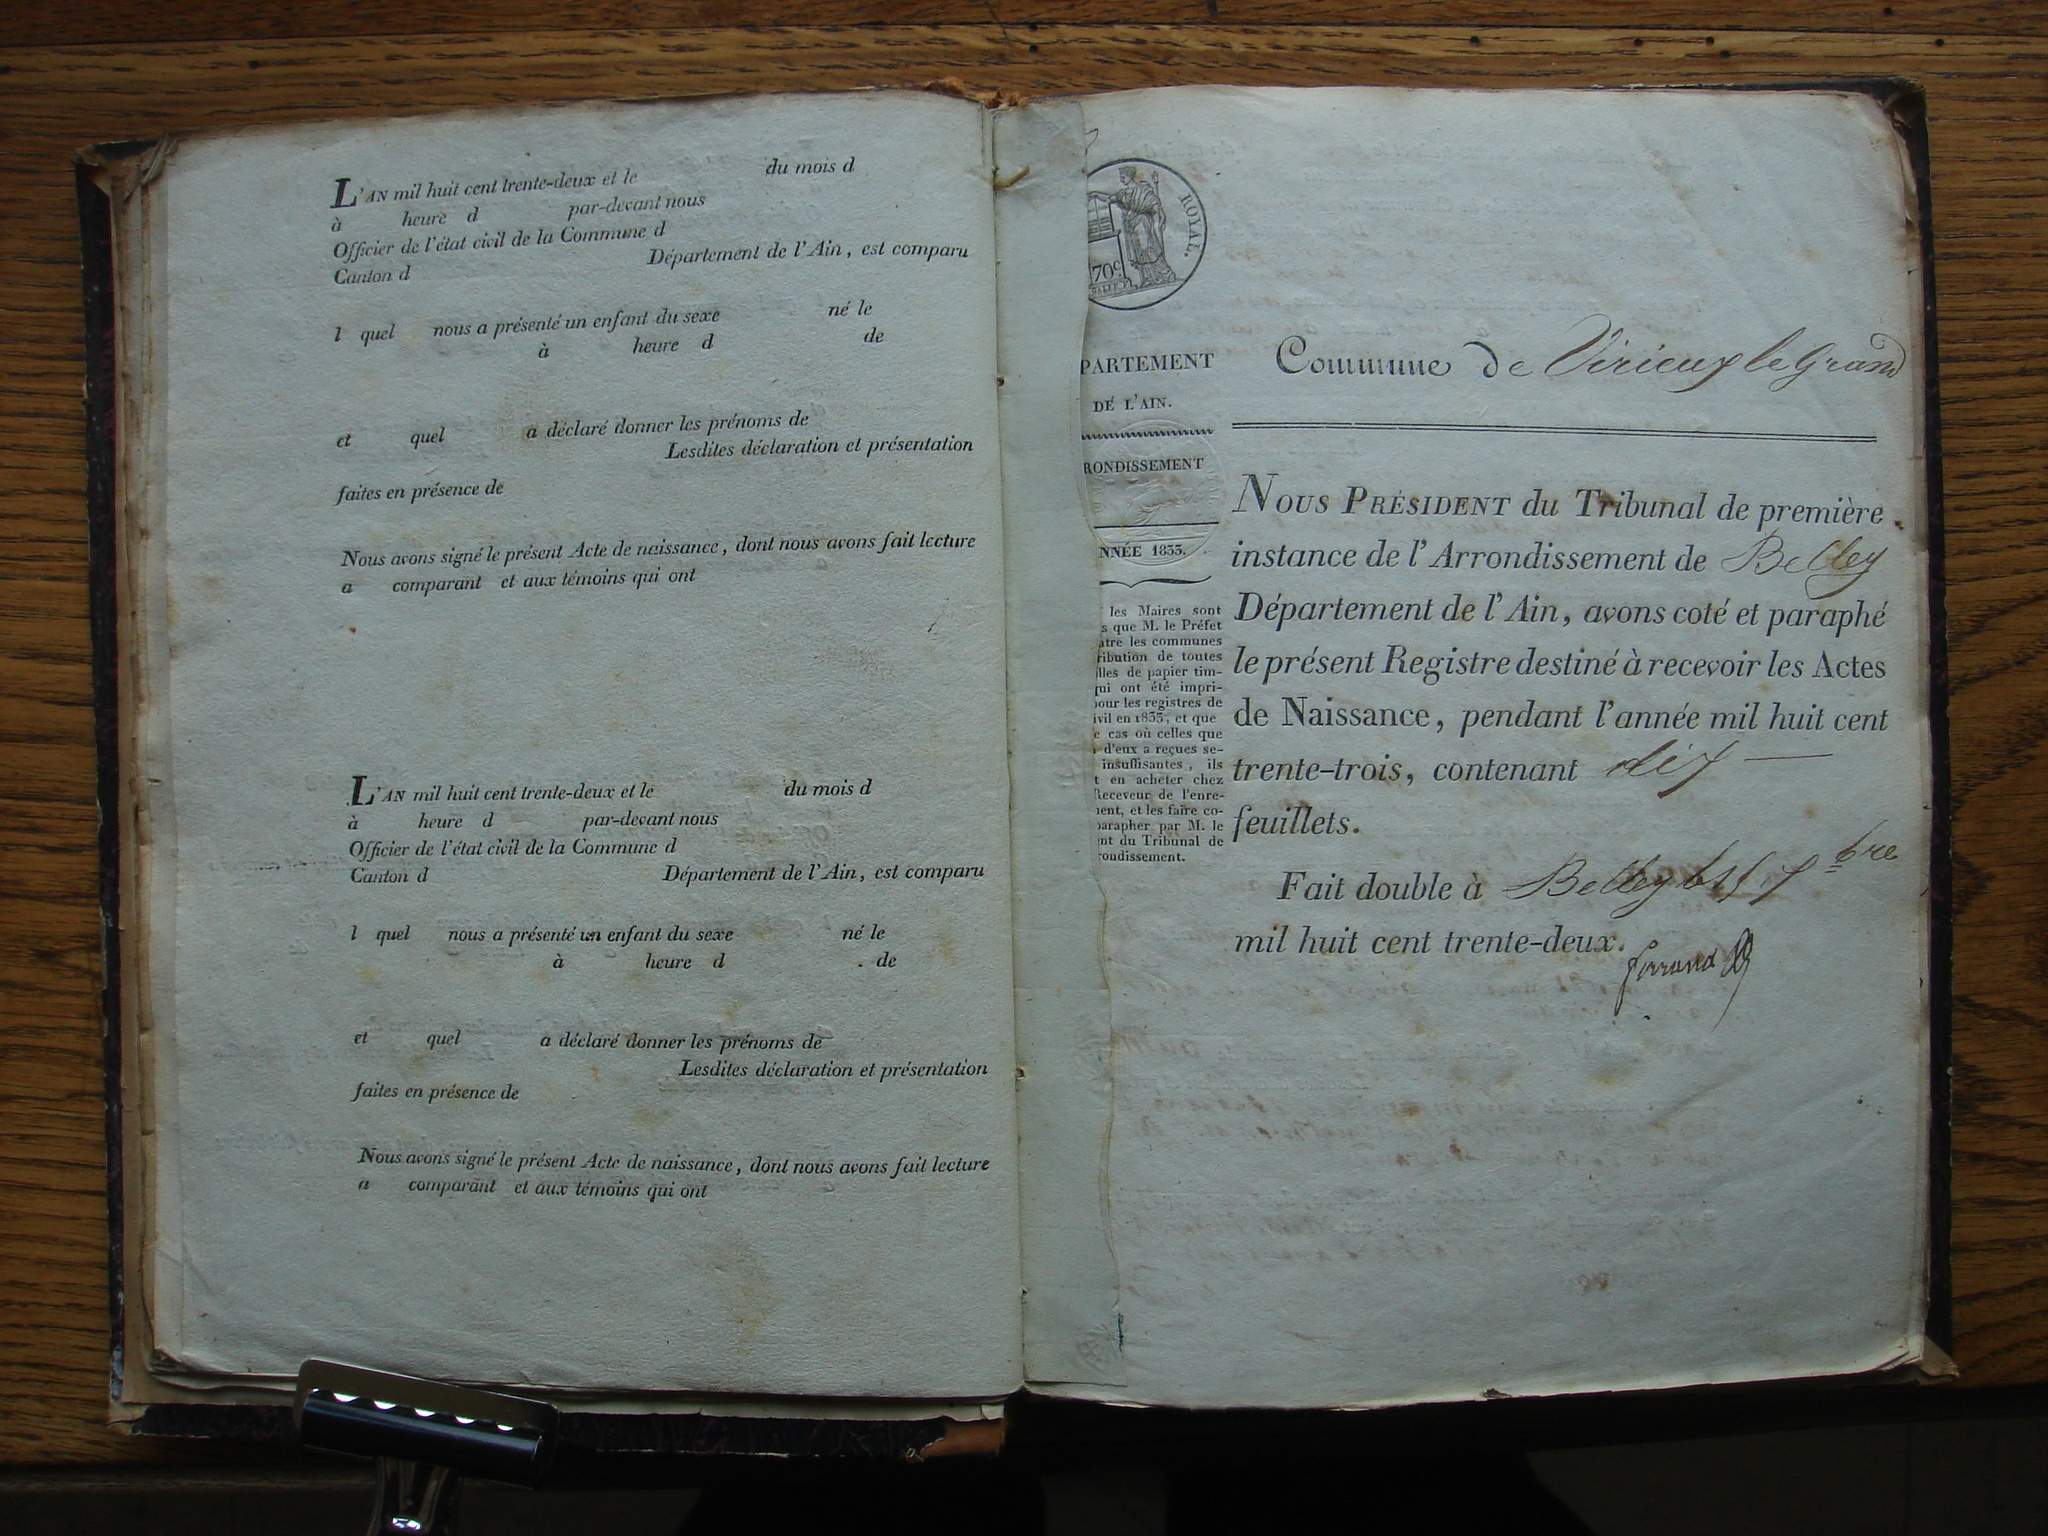 L'AN mil huit cent trente-deux et le du mois d
à heure d par-devant nous
Officier de l'état civil de la Commune d
Canton d Département de l'Ain, est comparu
l quel nous a présenté un enfant du sexe né le
à heure d de
et quel a déclaré donner les prénoms de
Lesdites déclaration et présentation
faites en présence de
Nous avons signé le présent Acte de naissance, dont nous avons fait lecture
a comparant et aux témoins qui ont
L'AN mil huit cent trente-deux et le du mois d
à heure d par-devant nous
Officier de l'état civil de la Commune d
Canton d Département de l'Ain, est comparu
l quel nous a présenté un enfant du sexe né le
à heure d de
et quel a déclaré donner les prénoms de
Lesdites déclaration et présentation
faites en présence de
Nous avons signé le présent Acte de naissance, dont nous avons fait lecture
a comparant et aux témoins qui ont
ROYAL.
70c
PARTEMENT
DE L'AIN.
RONDISSEMENT
NNÉE 1833.
les Maires sont
s que M. le Préfet
ntre les communes
ribution de toutes
lles de papier tim-
qui ont été impri-
pour les registres de
ivil en 1833, et que
e cas où celles que
d'eux a reçues se-
insuffisantes, ils
t en acheter chez
Receveur de l'enre-
ment, et les faire co-
parapher par M. le
nt du Tribunal de
rondissement.
Commune de Virieux le Grand
NOUS PRÉSIDENT du Tribunal de première
instance de l'Arrondissement de Belley
Département de l'Ain, avons coté et paraphé
le présent Registre destiné à recevoir les Actes
de Naissance, pendant l'année mil huit cent
trente-trois, contenant dix
feuillets.
Fait double à Belley le 15 7bre
mil huit cent trente-deux.